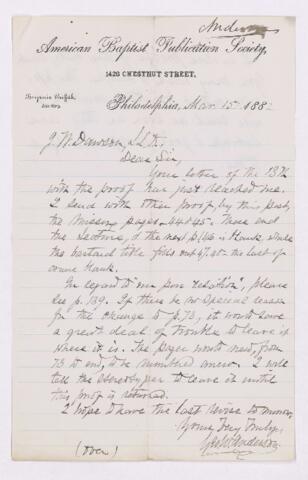 Anderson
American Baptist Publication Society,
1420 CHESTNUT STREET,
Benjamin Griffith,
Philadelphia, Mar 15 188
J. W. Dawson, LL.D.
Dear Sir,
Your letter of the 13th
with the proof has just reached me.
I send with other proof, by this post,
the missing pages 44 & 45. These end
the lecture, & the next p (46) is blank, while
the bastard title fills out 47, 48 the last of
course blank.
In regard to " ", please
see p. 139. If there be no special reason
for the change to p. 73, it would save
a great deal of trouble to leave it
where it is. The pages would need, from
73 to end, to be numbered anew. I will
tell the stereotyper to leave it until
this proof is returned.
I hope to have the last to morrow,
Yours very truly,
Geo W Anderson
(over)